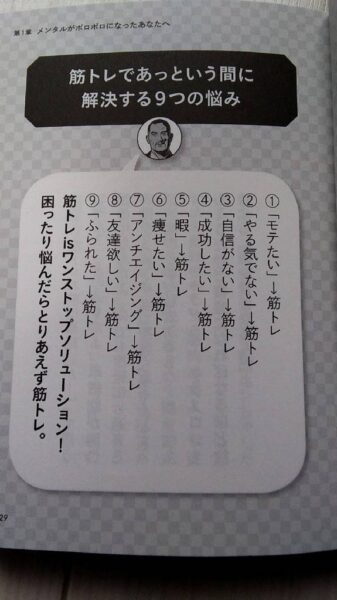 第1章 メンタルがボロボロになったあなたへ
筋トレであっという間に
解決する9つの悩み
①「モテたい」→筋トレ
②「やる気でない」→筋トレ
③「自信がない」→筋トレ
④「成功したい」→筋トレ
⑤「暇」→筋トレ
⑥「痩せたい」→筋トレ
⑦「アンチエイジング」→筋トレ
⑧「友達欲しい」→筋トレ
⑨「ふられた」→筋トレ
筋トレisワンストップソリューション!
困ったり悩んだらとりあえず筋トレ。
29